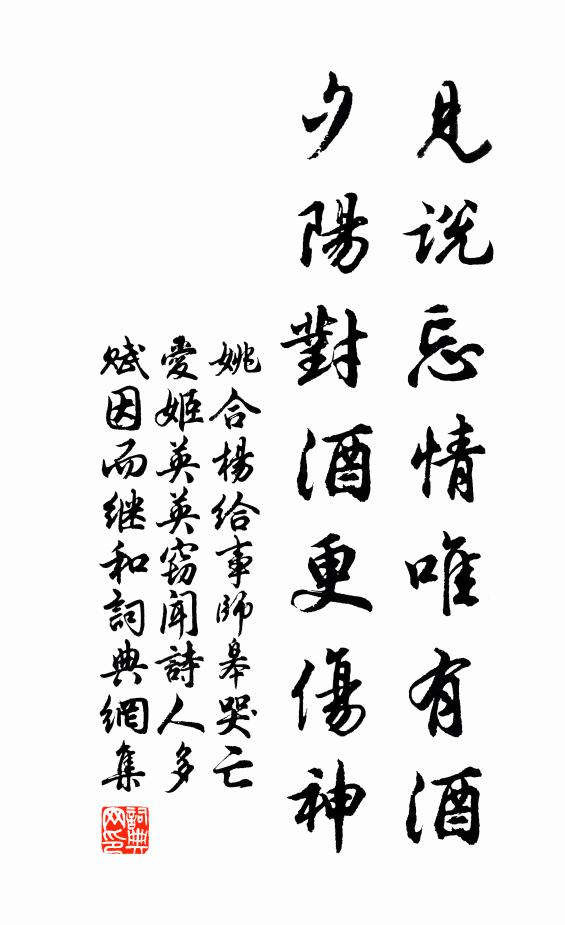 見説忘情唯有酒
夕陽對酒更傷神
姚合楊給事師皋哭亡
愛姬英英窃聞詩人多
賦因而继和詞典網集
詞典
网印